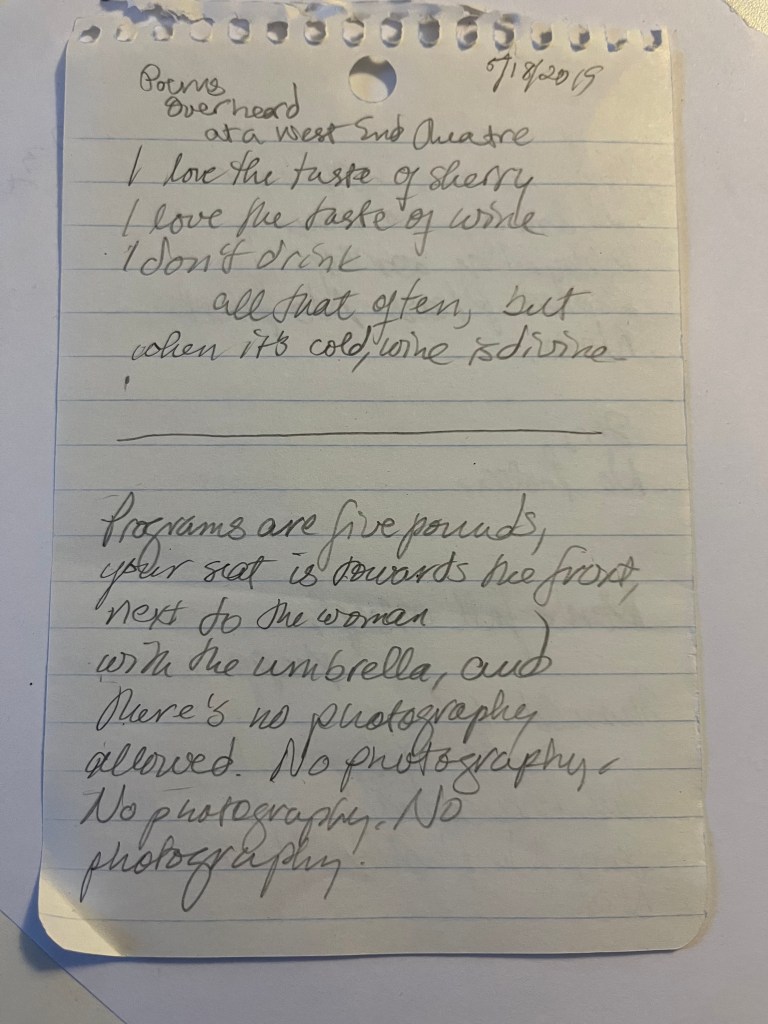 5/18/2019
Poems
Overheard
at a West End Theatre
I love the taste of sherry
I love the taste of wine
I don't drink
all that often, but
when it's cold, wine is divine
Programs are five pounds,
your seat is towards the front,
next to the woman
with the umbrella, and
there's no photography
allowed. No photography.
No photography. No
photography.